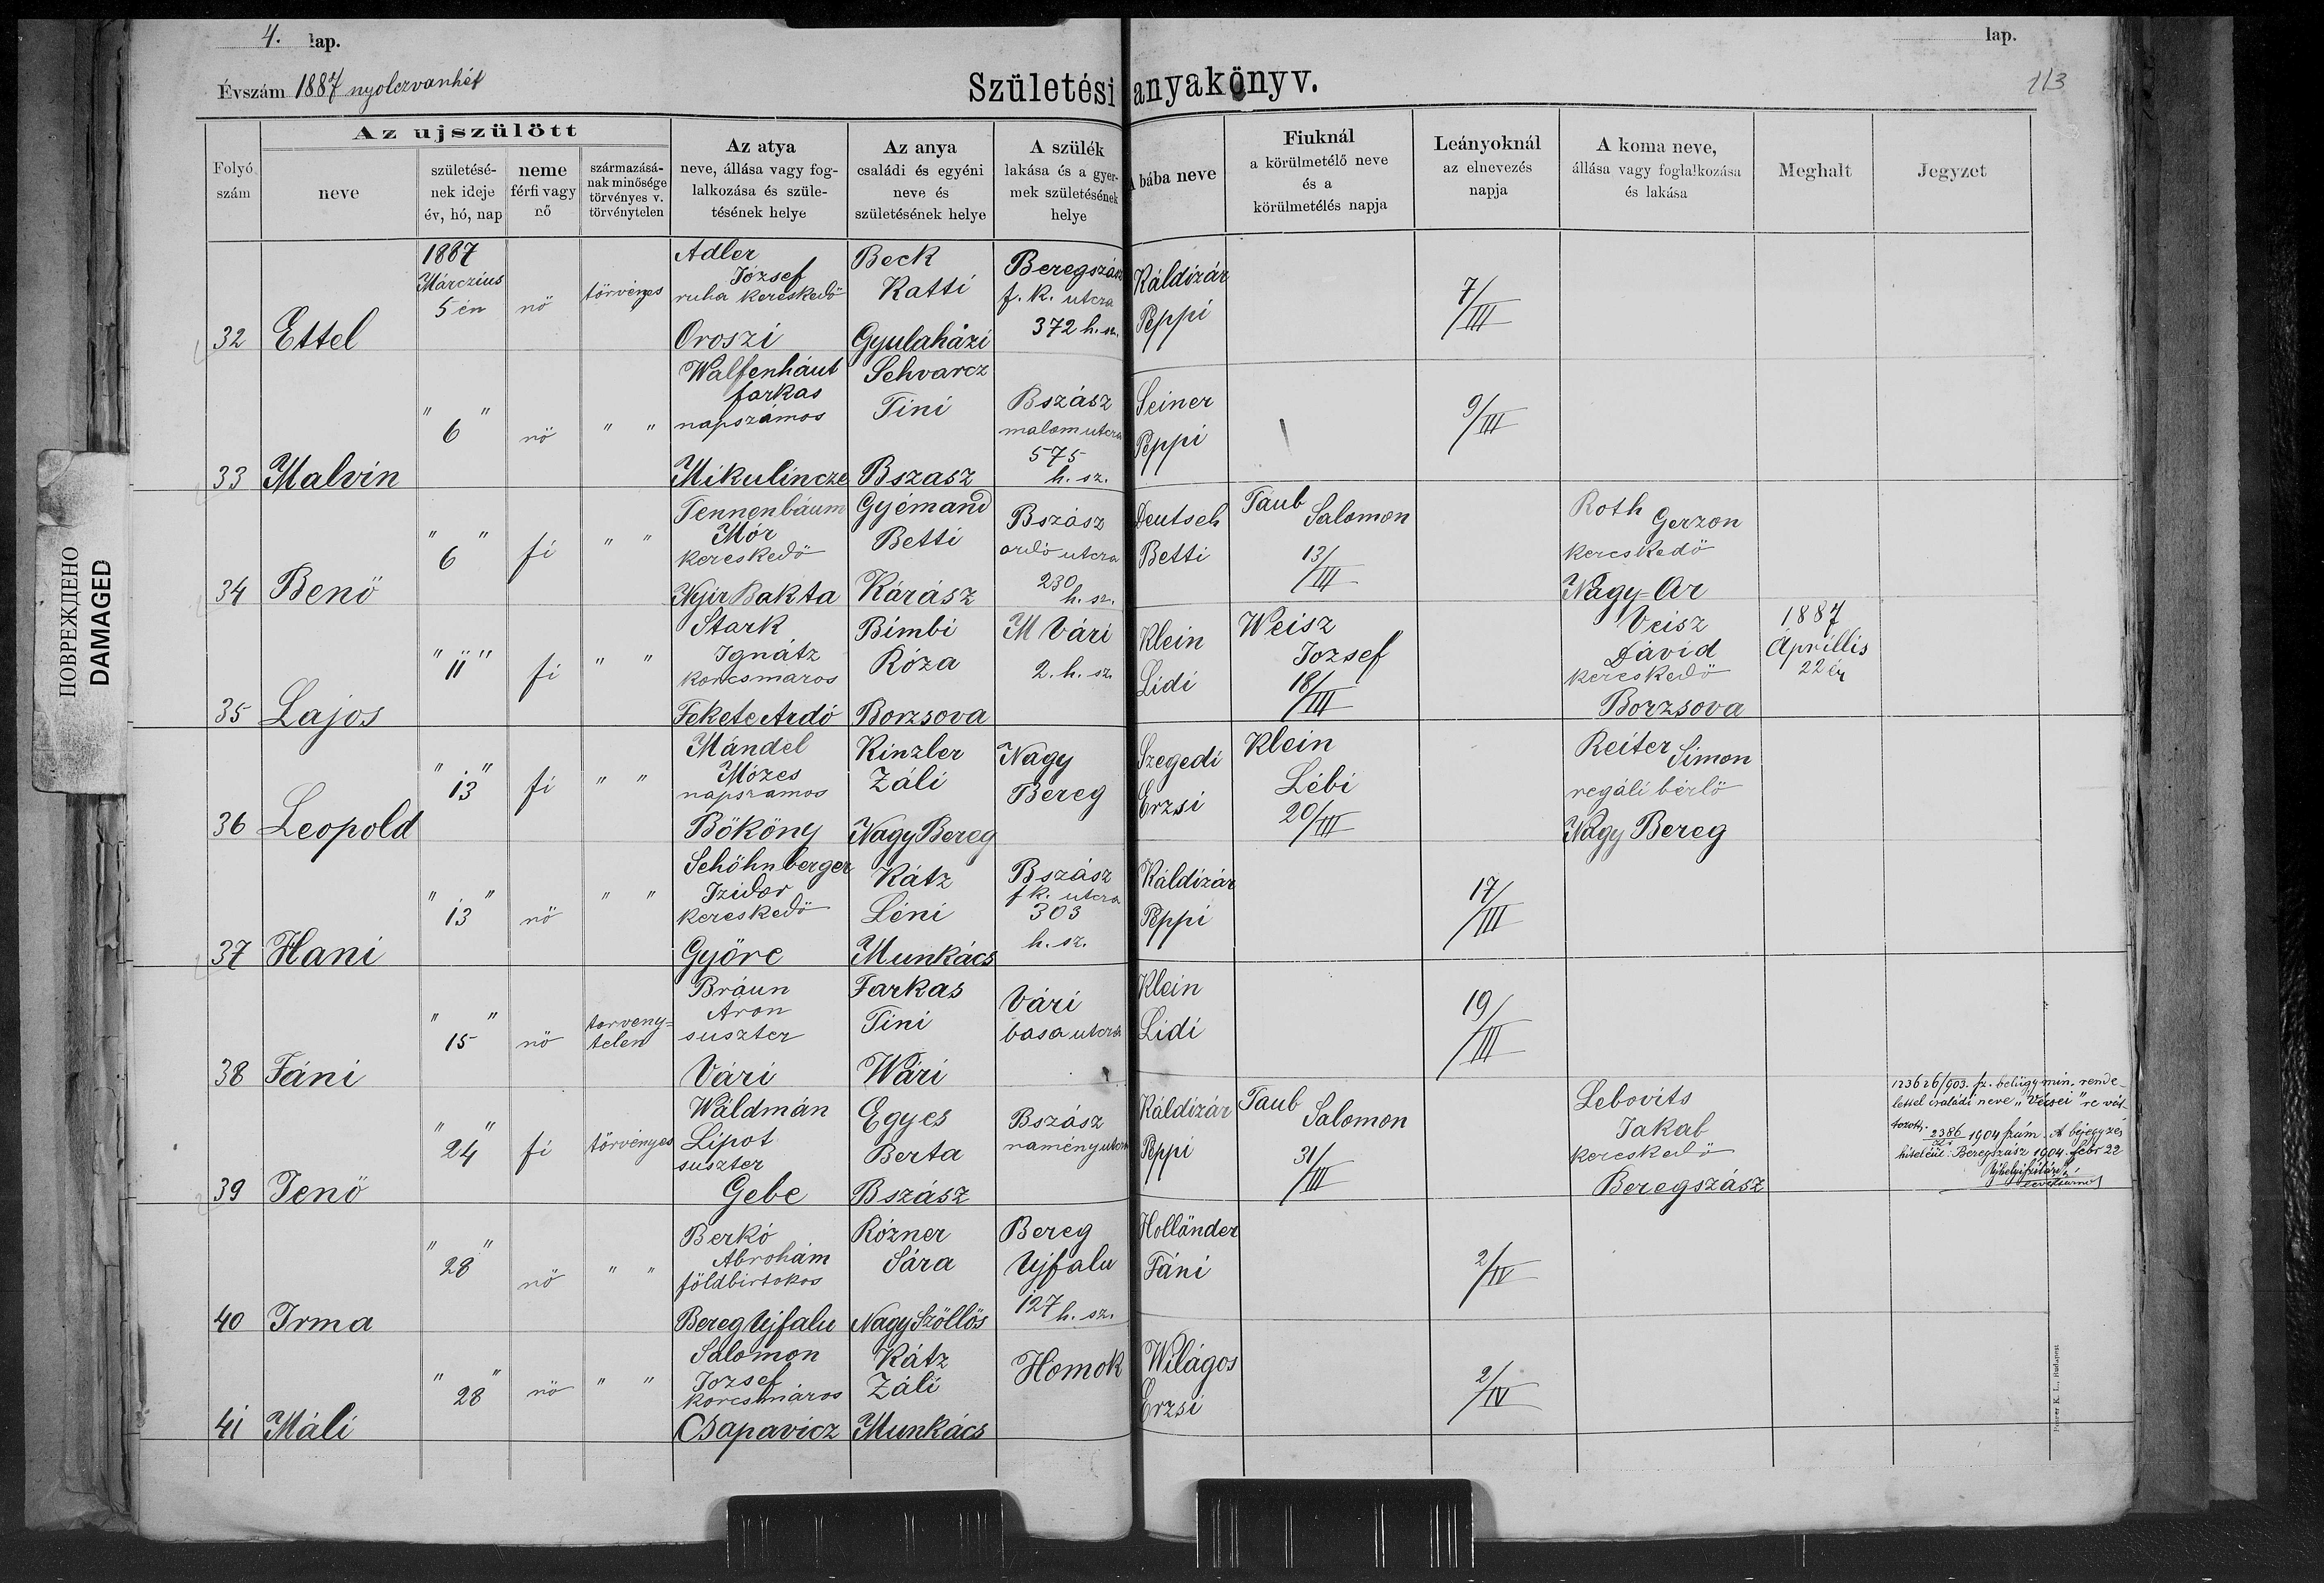 4. lap.
lap.
Évszám 1887 nyolczvanhét
Születési anyakönyv.
113
Folyó szám
Az ujszülött
neve
születésé-
nek ideje
év, hó, nap
neme
férfi vagy
nő
származásá-
nak minősége
törvényes v.
törvénytelen
Az atya
neve, állása vagy fog-
lalkozása és szüle-
tésének helye
Az anya
családi és egyéni
neve és
születésének helye
A szülék
lakása és a gyer-
mek születésének
helye
A bába neve
Fiuknál
a körülmetélő neve
és a
körülmetélés napja
Leányoknál
az elnevezés
napja
A koma neve,
állása vagy foglalkozása
és lakása
Meghalt
Jegyzet
32 Ettel
1887
Márczius
5 én
nö
törvényes
Adler
József
ruha kereskedö
Oroszi
Beck
Katti
Gyulaházi
Beregszász
f. k. utcza
372 h. sz.
Káldizár
Peppi
7/III
33 Malvin
" 6 "
nö
" "
Walfenháut
farkas
napszámos
Mikulincze
Schvarcz
Tini
Bszasz
Bszász
malom utcza
575
h. sz.
Seiner
Peppi
9/III
34 Benö
" 6 "
fi
" "
Tennenbáum
Mór
kereskedö
Nyir Bakta
Gyémand
Betti
Kárász
Bszász
ardó utcza
230
h. sz.
Deutsch
Betti
Taub
Salomon
13/III
Roth
Gerzon
kereskedö
Nagy=Ar
35 Lajos
" 11 "
fi
" "
Stark
Ignátz
korcsmaros
Fekete Ardó
Bimbi
Róza
Borzsova
M Vári
2. h. sz.
Klein
Lidi
Weisz
Jozsef
18/III
Veisz
Dávid
kereskedö
Borzsova
1887
Áprillis
22 én
36 Leopold
" 13 "
fi
" "
Mándel
Mózes
napszamos
Bököny
Kinzler
Záli
Nagy Bereg
Nagy
Bereg
Szegedi
Erzsi
Klein
Lébi
20/III
Reiter
Simon
regáli bérlö
Nagy Bereg
37 Hani
" 13 "
nö
" "
Schöhnberger
Izidor
kereskedö
Györe
Kátz
Léni
Munkács
Bszász
f k. utcza
303
h. sz.
Káldizár
Peppi
17/III
38 Fáni
" 15 "
nö
torveny=
telen
Bráun
Aron
suszter
Vári
Farkas
Tini
Wári
Vári
basa utcza
Klein
Lidi
19/III
39 Jenö
" 24 "
fi
törvényes
Wáldmán
Lipot
suszter
Gebe
Egyes
Berta
Bszász
Bszász
namény utcza
Káldizár
Peppi
Taub
Salomon
31/III
Lebovits
Jakab
kereskedö
Beregszász
123626/903. sz. belügy min. rende-
lettel családi neve "Vécsei" re vál-
tozott. 2386 1904 szám. A bejegyzés
hiteléül: Beregszász 1904. febr 22
40 Irma
" 28 "
nö
" "
Berkó
Abrohám
földbirtokos
Bereg Ujfalu
Rózner
Sára
Nagy Szöllös
Bereg
Ujfalu
127 h. sz.
Holländer
Fáni
2/IV
41 Máli
" 28 "
nö
" "
Salomon
Jozsef
korcsmáros
Csapavicz
Kátz
Záli
Munkács
Homok
Wilágos
Erzsi
2/IV
ПОВРЕЖДЕНО
DAMAGED